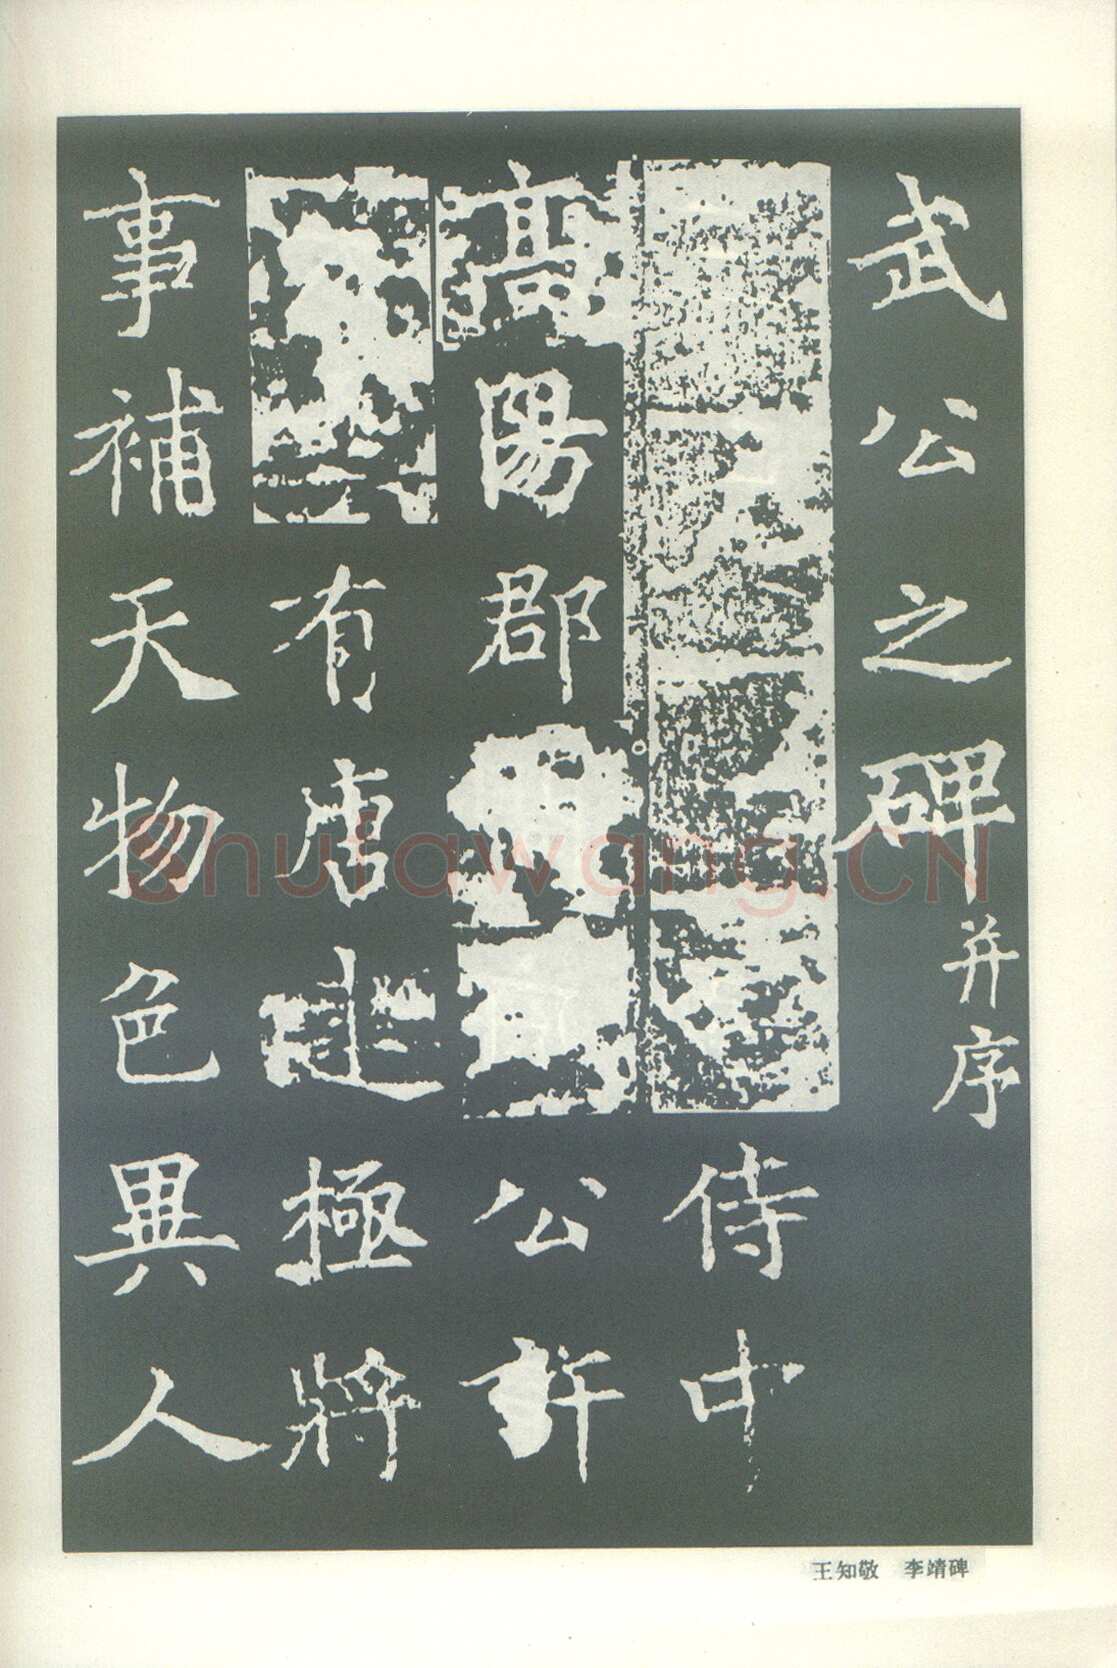 武公之碑并序
侍中
高陽郡公許
有唐建極將
事補天物色異人
王知敬 李靖碑
Shufawang.CN